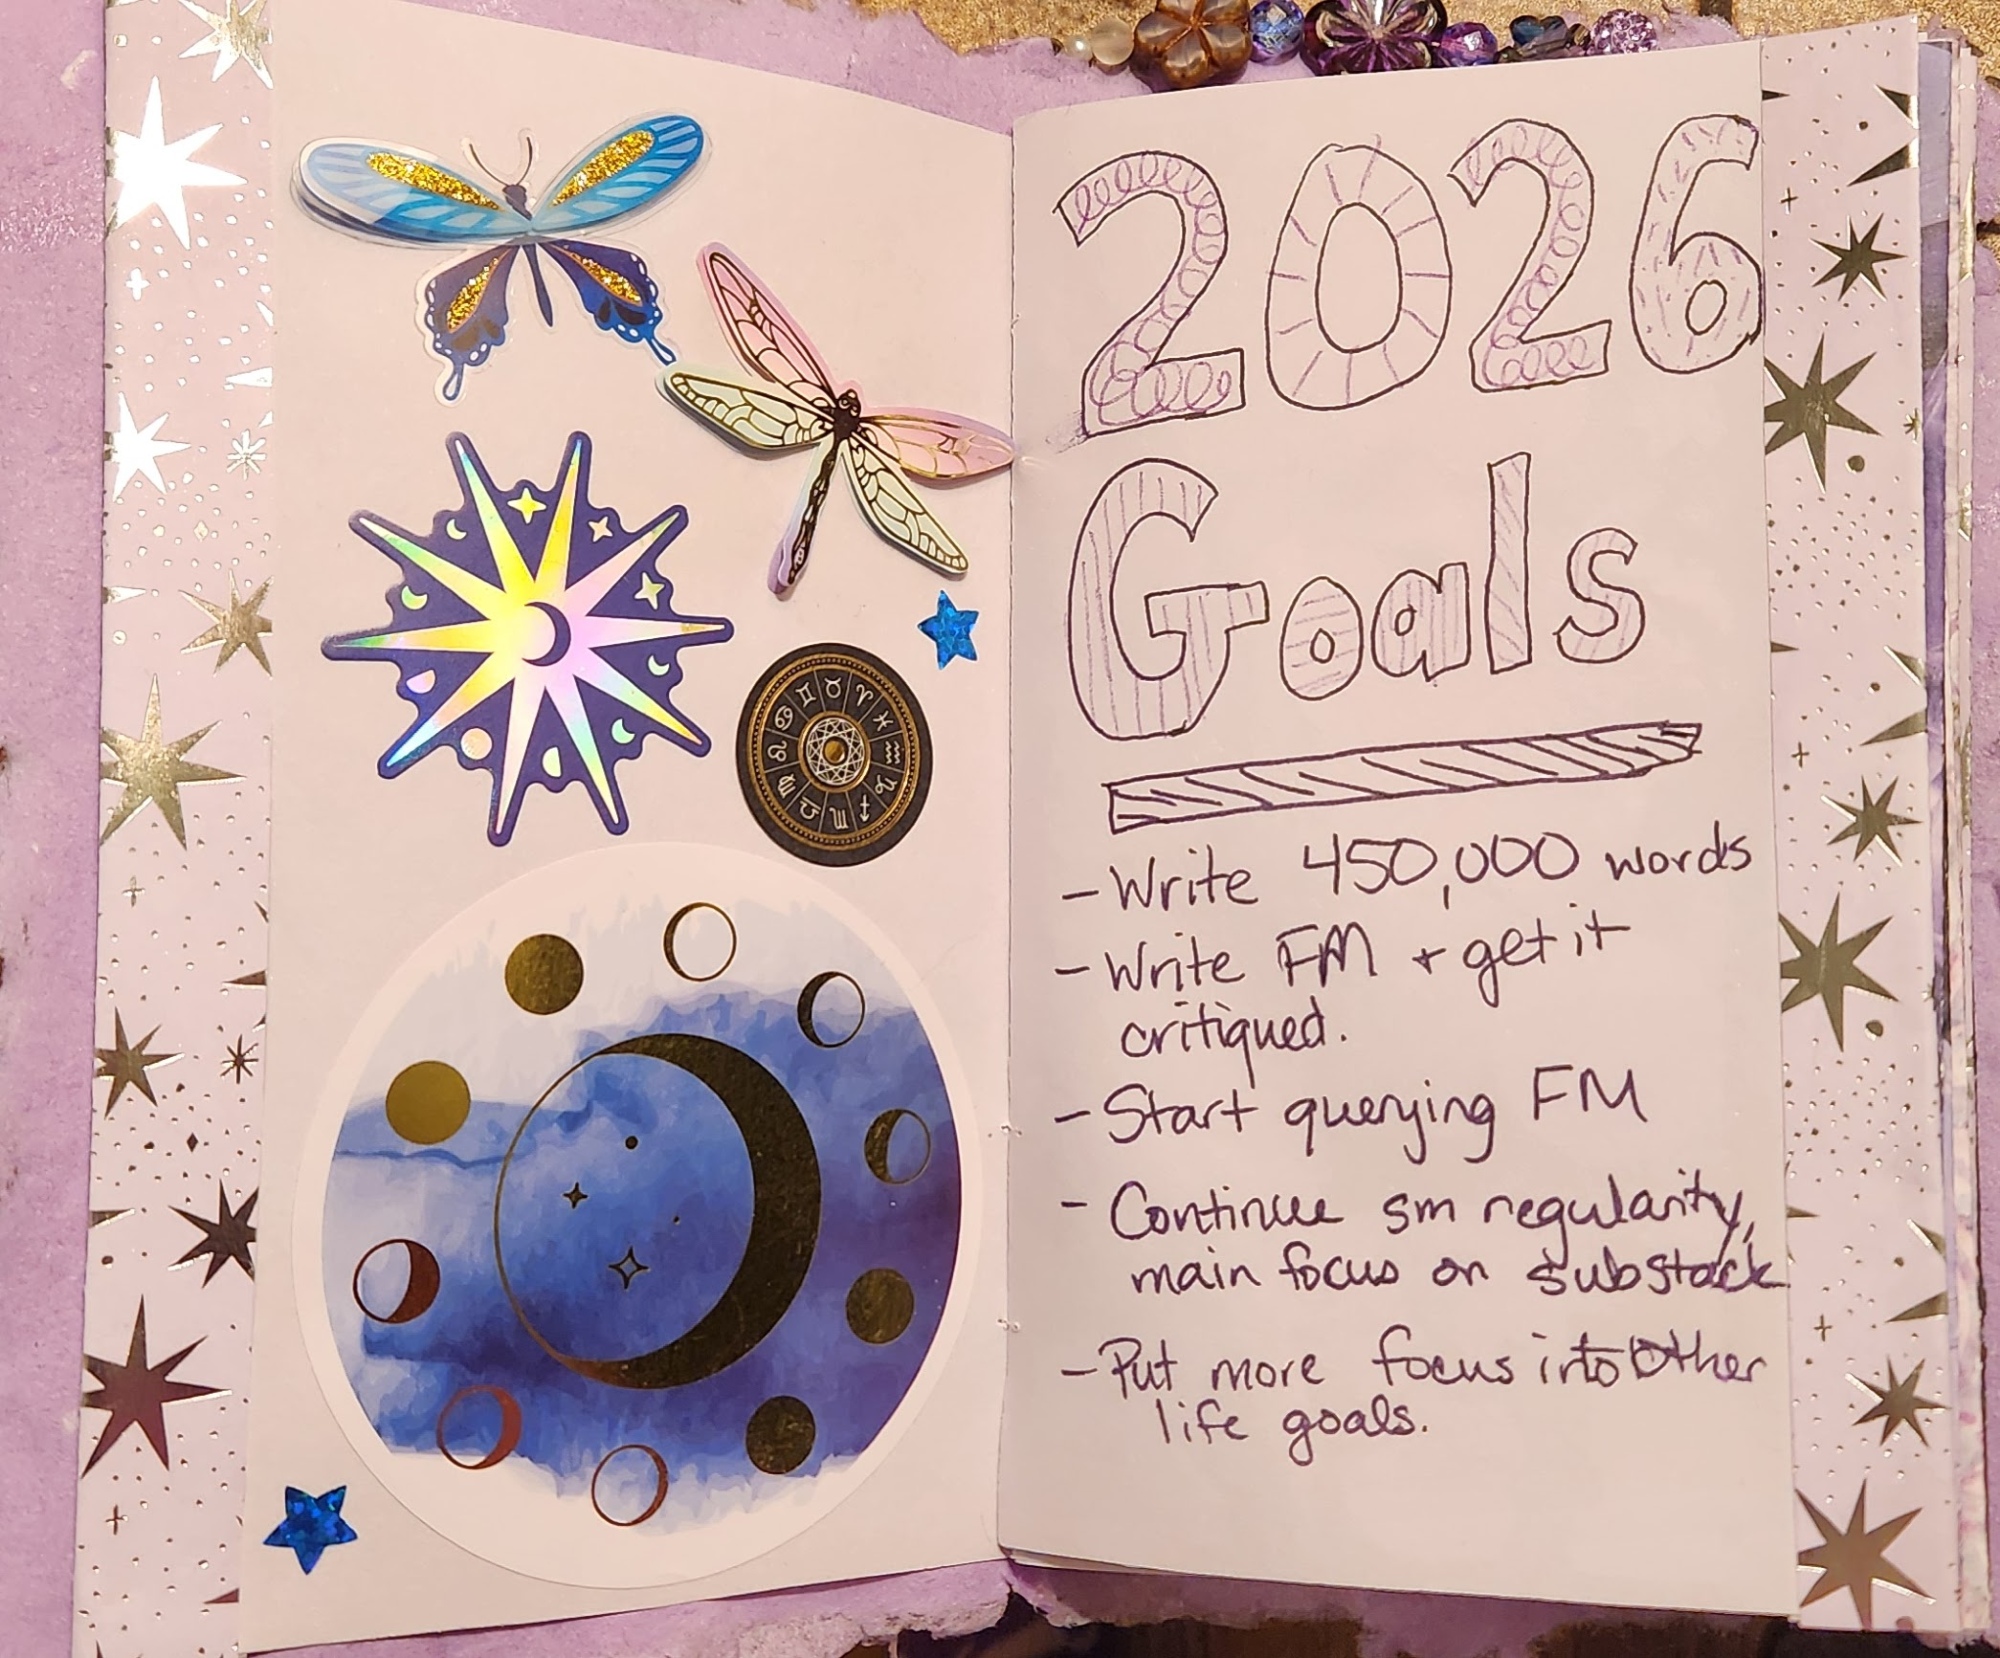 2026
Goals
- Write 450,000 words
- Write FM + get it
critiqued.
- Start querying FM
- Continue sm regularity,
main focus on substack
- Put more focus into other
life goals.